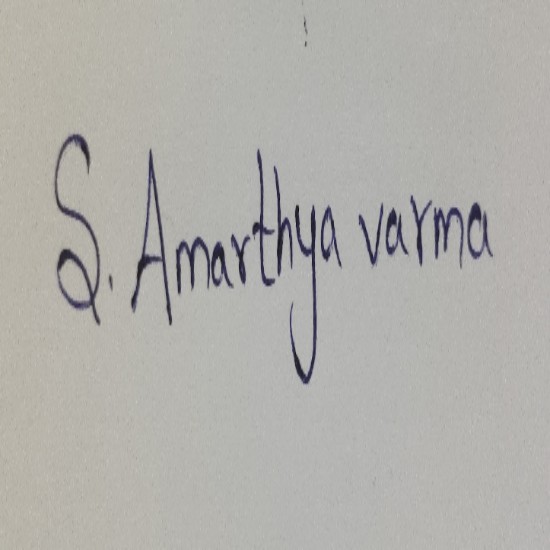 S. Amarthya varma